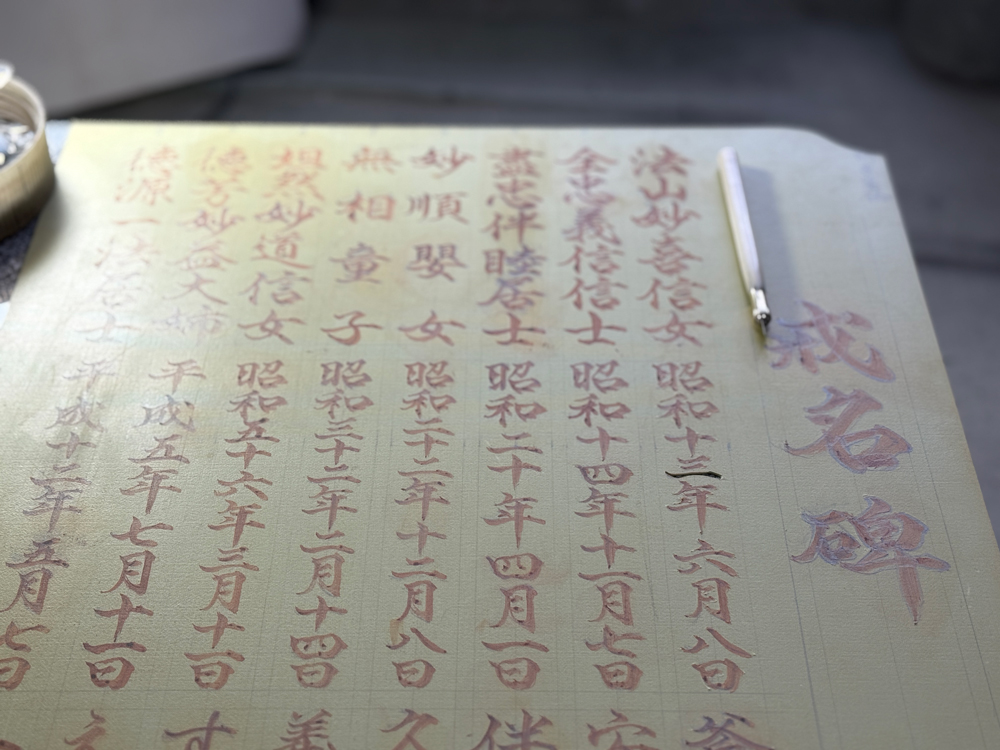 戒名碑
法山妙喜信女 昭和十三年六月八日
全忠義信信士 昭和十四年十一月七日
盡忠伴睦居士 昭和二十年四月一日 伴
妙順嬰女 昭和二十二年十二月八日 久
無相童子 昭和三十二年二月十四日 義
超然妙道信女 昭和五十六年三月十一日 す
徳芳妙益大姉 平成五年七月十一日
徳源一法居士 平成十二年五月七日